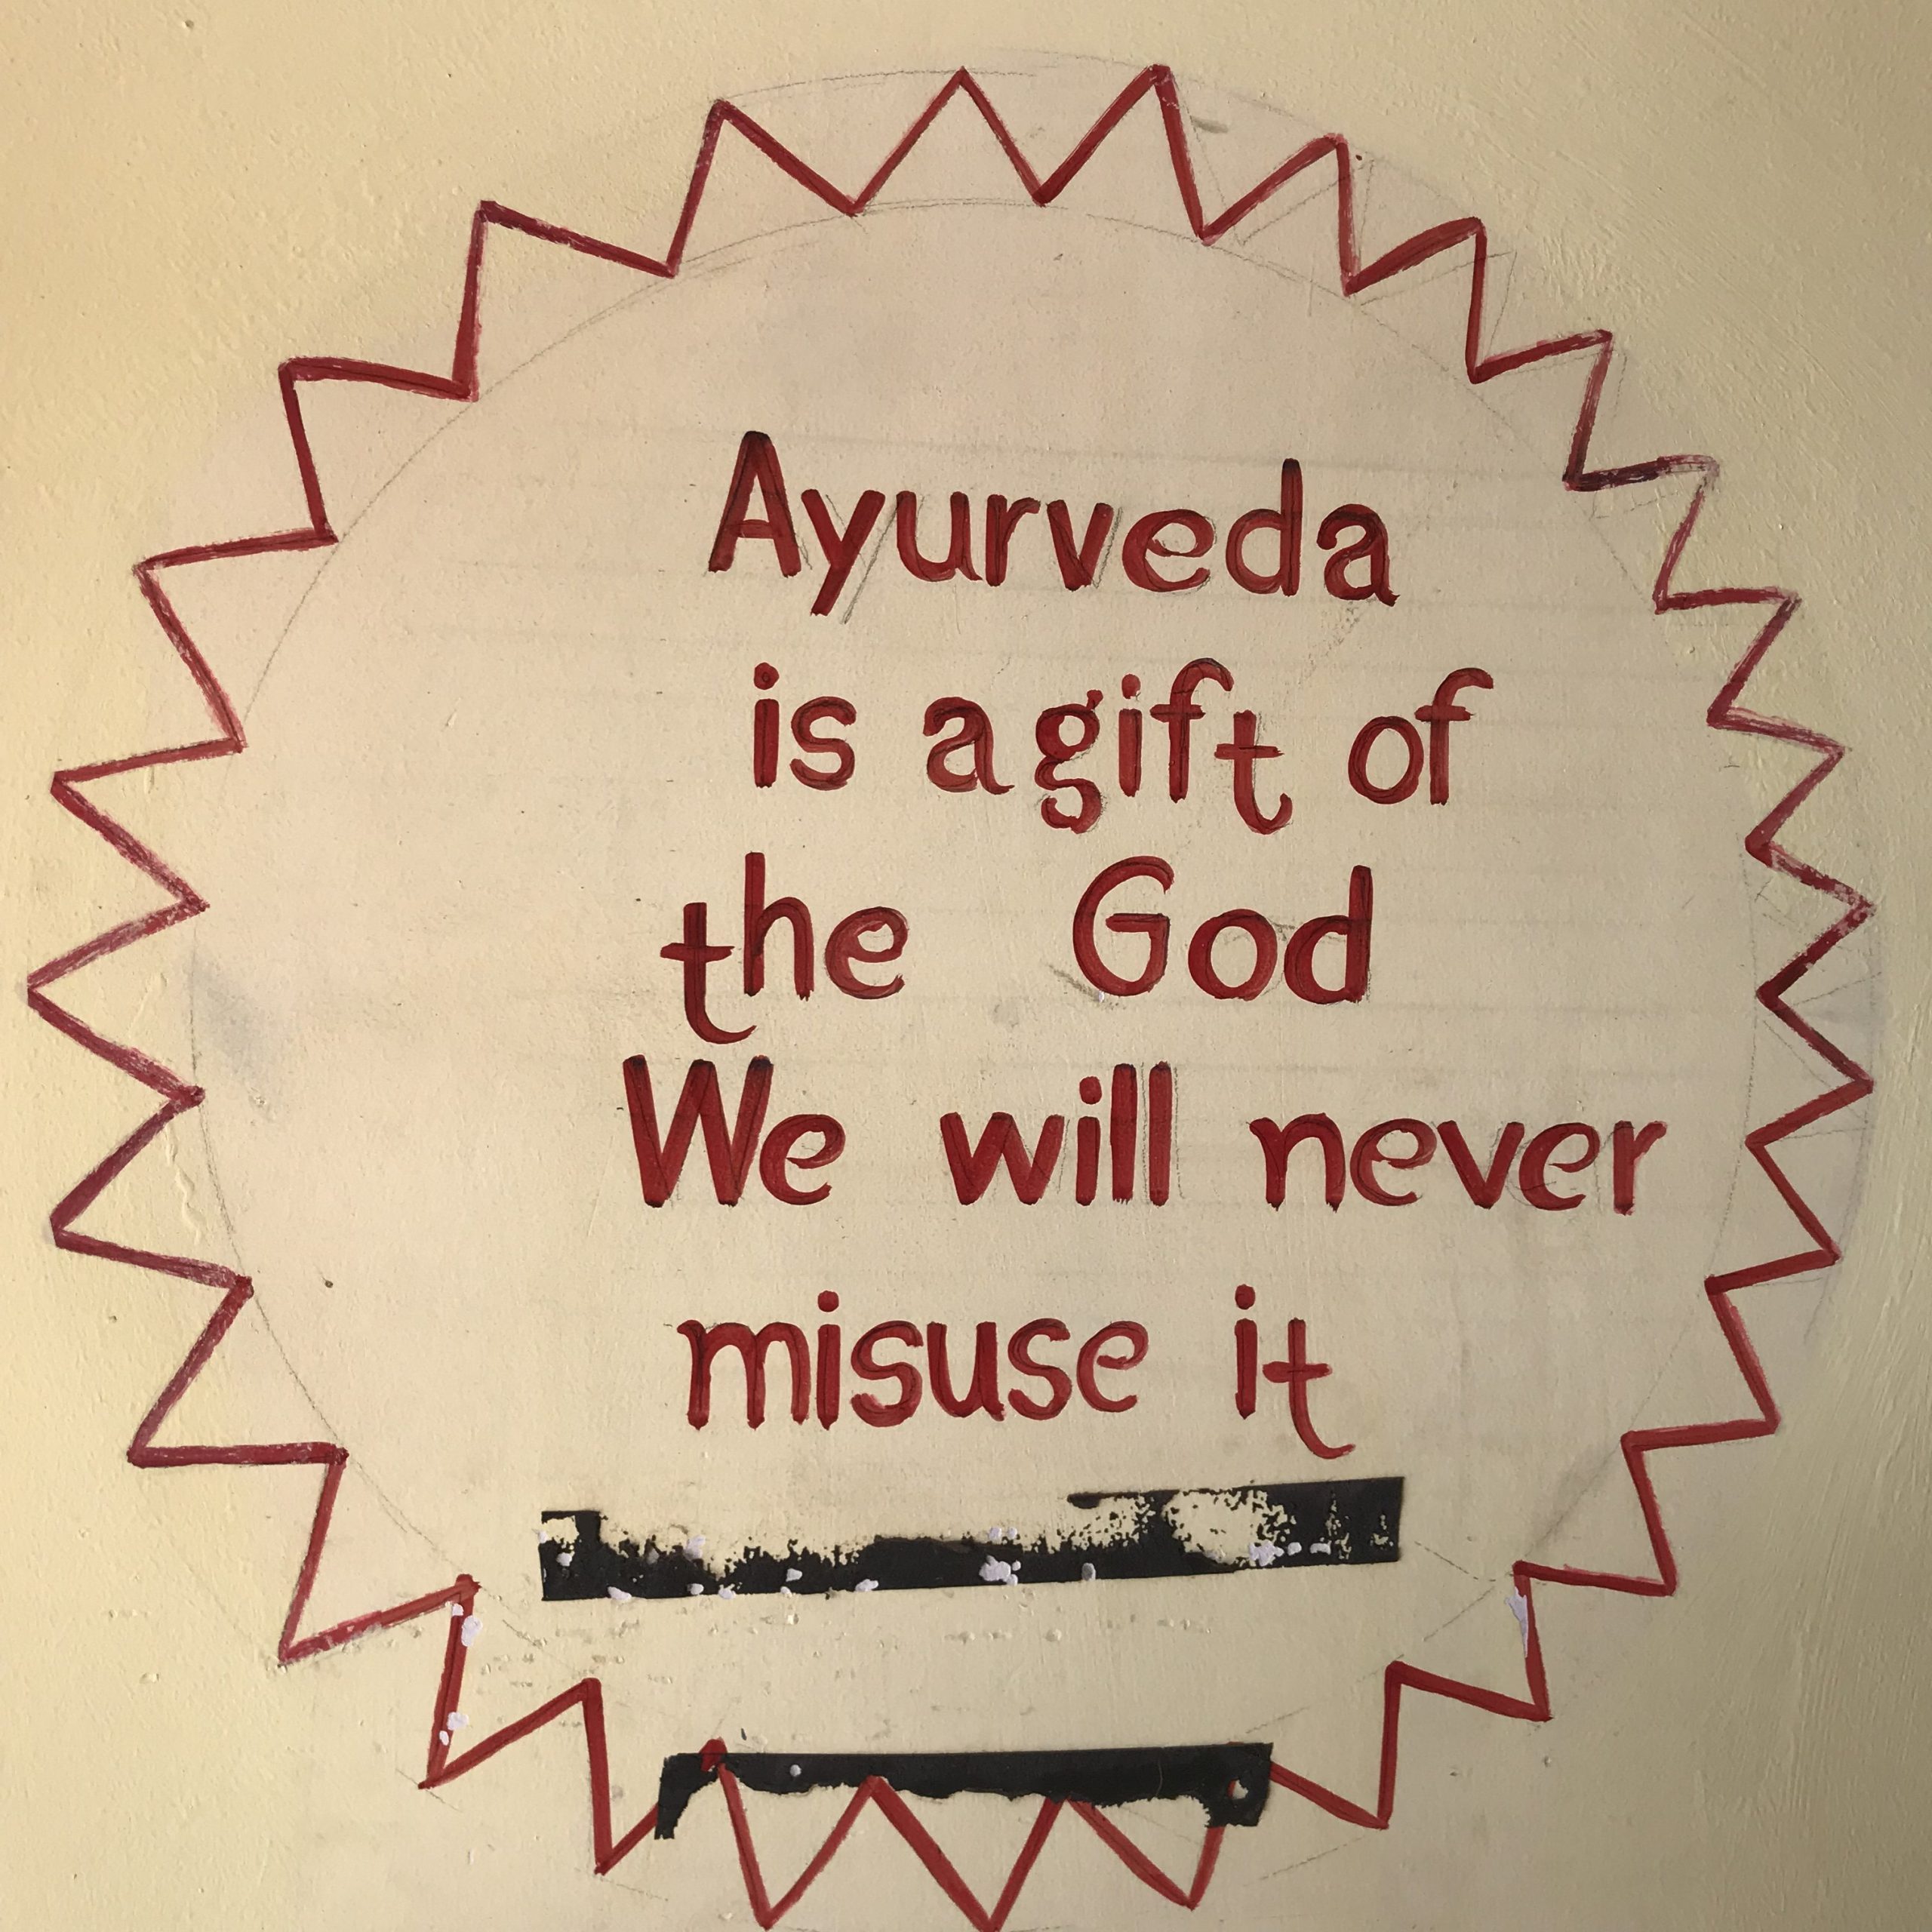 Ayurveda
is a gift of
the God
We will never
misuse it